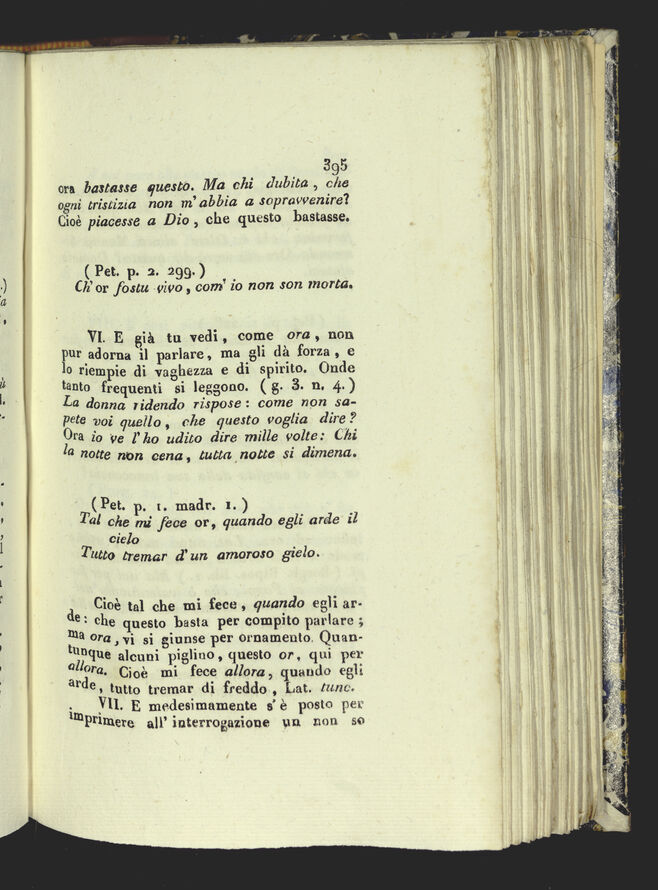 395
ora bastasse questo. Ma chi dubita , che
ogni tristizia non m'abbia a sopravvenire?
Cioè piacesse a Dio , che questo bastasse.
( Pet. p. 2. 299. )
Ch'or fostu vivo , com' io non son morta.
VI. E già tu vedi , come ora , non
pur adorna il parlare , ma gli dà forza , e
lo riempie di vaghezza e di spirito. Onde
tanto frequenti si leggono. ( g. 3. n. 4. )
La donna ridendo rispose : come non sa-
pete voi quello , che questo voglia dire ?
Ora io ve l'ho udito dire mille volte: Chi
la notte non cena , tutta notte si dimena.
( Pet. p. 1. madr. 1. )
Tal che mi fece or, quando egli arde il
cielo
Tutto tremar d'un amoroso gielo.
Cioè tal che mi fece , quando egli ar-
de : che questo basta per compito parlare ;
ma ora , vi si giunse per ornamento. Quan-
tunque alcuni piglino , questo or, qui per
allora. Cioè mi fece allora, quando egli
arde , tutto tremar di freddo , Lat. tunc.
VII. E medesimamente s'è posto per
imprimere all' interrogazione un non so